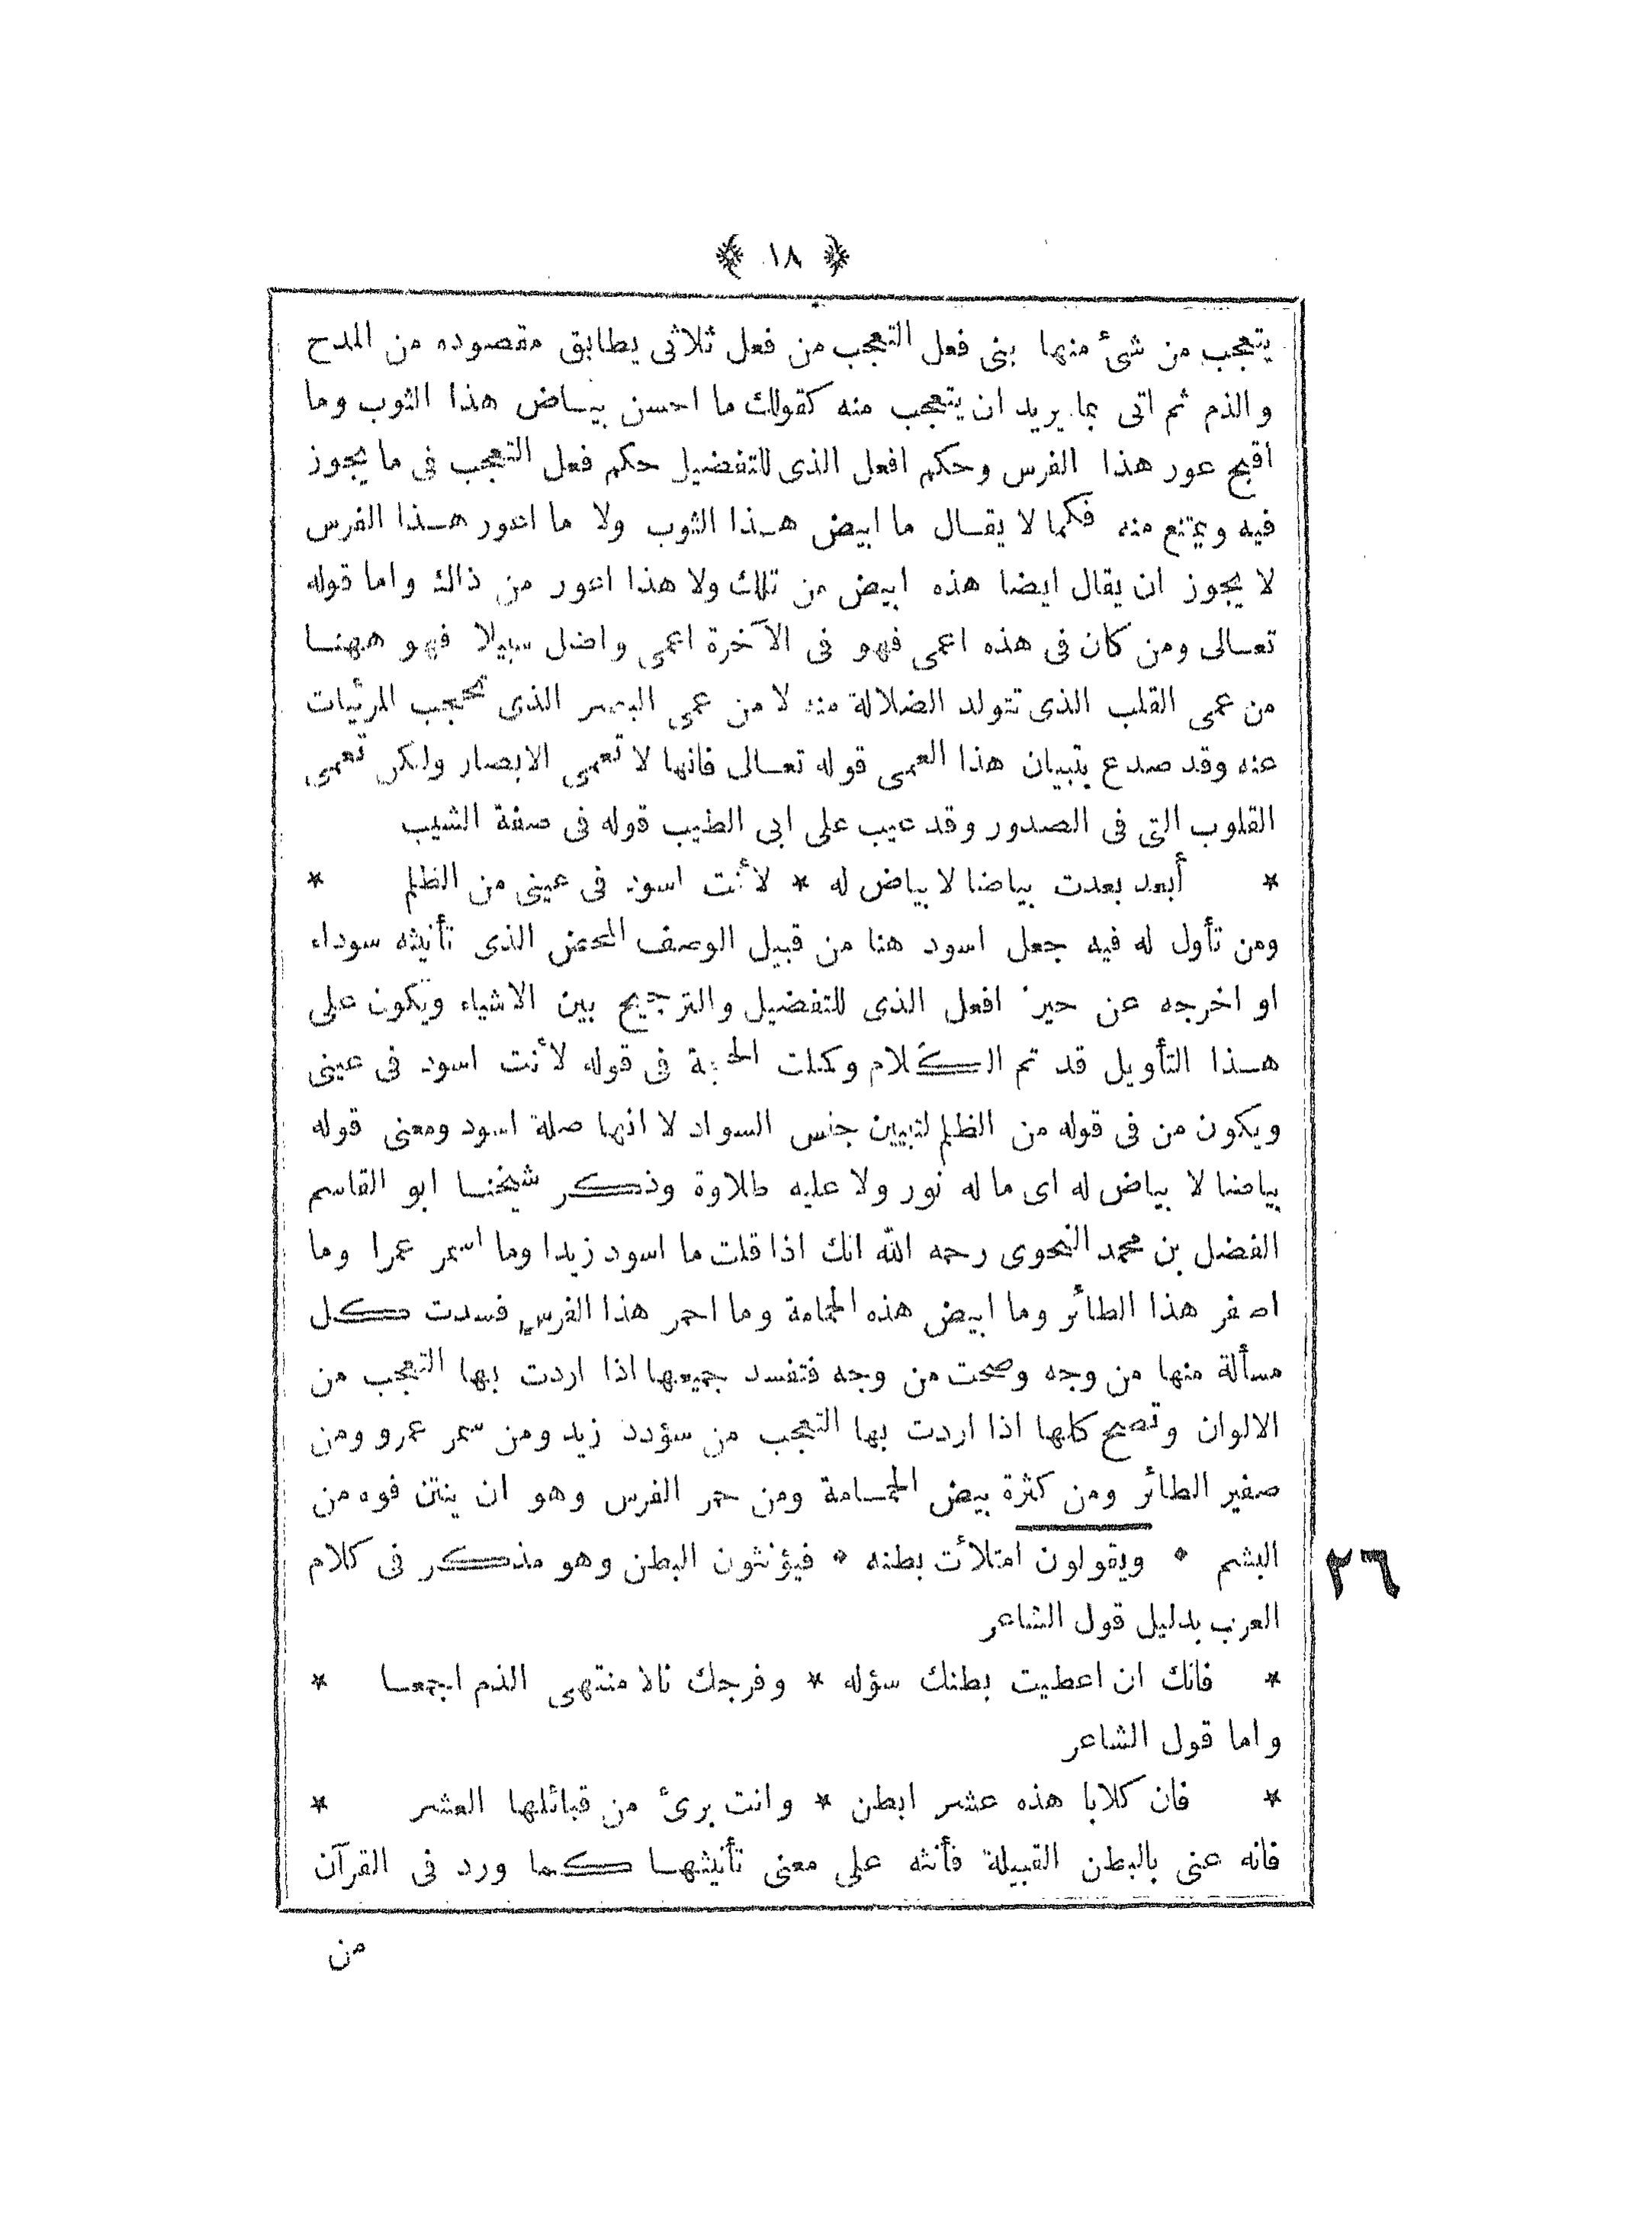 ﴿ ١٨ ﴾
يتعجب من شئ منها بنى فعل التعجب من فعل ثلاثى يطابق مقصوده من المدح
والذم ثم اتى بما يريد ان يتعجب منه كقولك ما احسن بيـاض هذا الثوب وما
اقبح عور هذا الفرس وحكم افعل الذى للتفضيل حكم فعل التعجب فى ما يجوز
فيه ويمتنع منه فكما لا يقـال ما ابيض هـذا الثوب ولا ما اعور هـذا الفرس
لا يجوز ان يقال ايضا هذه ابيض من تلك ولا هذا اعور من ذاك واما قوله
تعـالى ومن كان فى هذه اعمى فهو فى الآخرة اعمى واضل سبيلا فهو ههنـا
من عمى القلب الذى تتولد الضلالة منه لا من عمى البصر الذى تحجب المرئيات
عنه وقد صدع بتبيان هذا العمى قوله تعـالى فانها لا تعمى الابصار ولكن تعمى
القلوب التى فى الصدور وقد عيب على ابى الطيب قوله فى صفة الشيب
* أبعد بعدت بياضا لا بياض له * لأنت اسود فى عينى من الظلم *
ومن تأول له فيه جعل اسود هنا من قبيل الوصف المحض الذى تأنيثه سوداء
او اخرجه عن حيز افعل الذى للتفضيل والترجيح بين الاشياء ويكون على
هـذا التأويل قد تم الكلام وكملت الحجة فى قوله لأنت اسود فى عينى
ويكون من فى قوله من الظلم لتبيين جنس السواد لا انها صلة اسود ومعنى قوله
بياضا لا بياض له اى ما له نور ولا عليه طلاوة وذكر شيخنـا ابو القاسم
الفضل بن محمد النحوى رحمه الله انك اذا قلت ما اسود زيدا وما اسمر عمرا وما
اصفر هذا الطائر وما ابيض هذه الحمامة وما احمر هذا الفرس فسدت كل
مسألة منها من وجه وصحت من وجه فتفسد جميعها اذا اردت بها التعجب من
الالوان وتصح كلها اذا اردت بها التعجب من سؤدد زيد ومن سمر عمرو ومن
صفير الطائر ومن كثرة بيض الحمـامة ومن حمر الفرس وهو ان ينتن فوه من
البشم * ويقولون امتلأت بطنه * فيؤنثون البطن وهو مذكر فى كلام
٢٦
العرب بدليل قول الشاعر
* فانك ان اعطيت بطنك سؤله * وفرجك نالا منتهى الذم اجمعـا *
واما قول الشاعر
* فان كلابا هذه عشر ابطن * وانت برئ من قبائلها العشر *
فانه عنى بالبطن القبيلة فأنثه على معنى تأنيثهـا كـما ورد فى القرآن
من